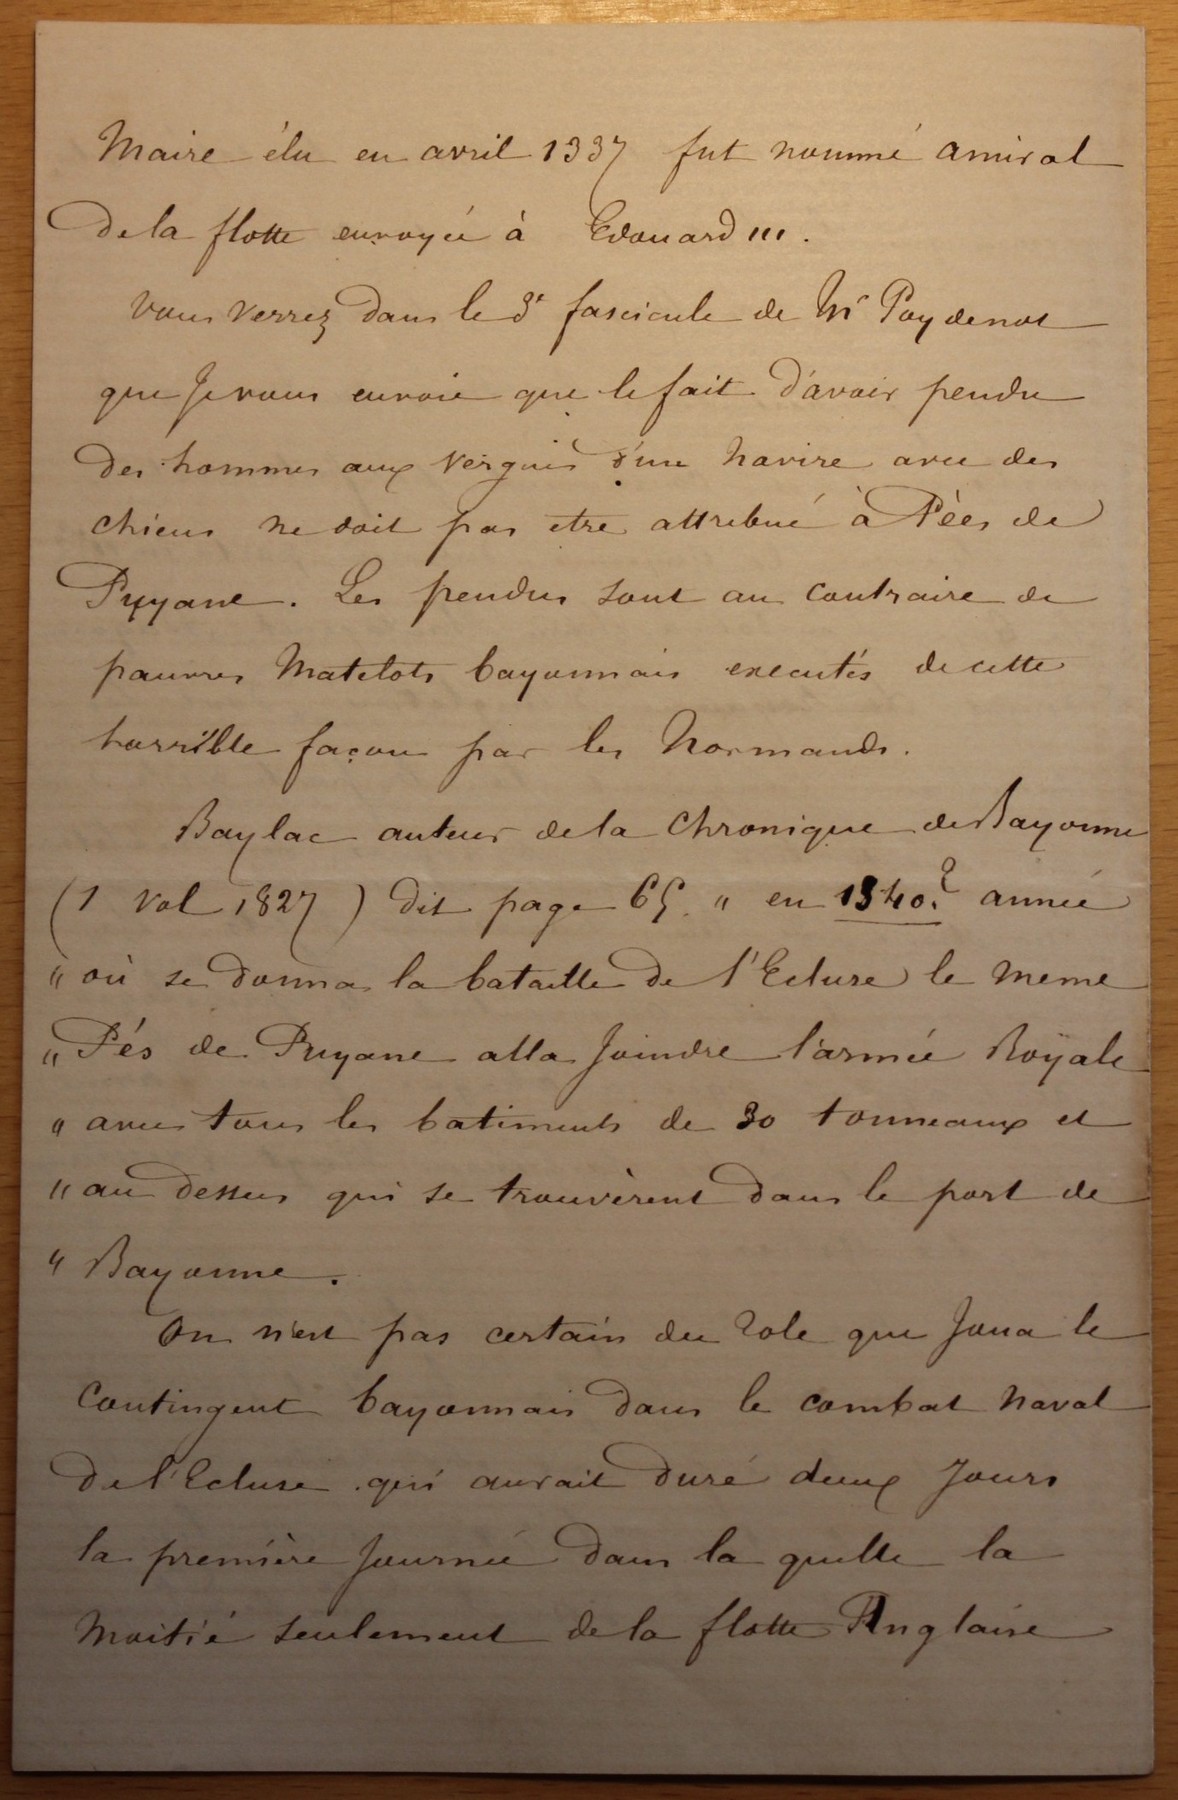 Maire élu en avril 1337 fut nommé amiral
de la flotte envoyée à Edouard III.
Vous verrez dans le 3e fascicule de Mr Poydenot
que je vous envoie que le fait d'avoir pendu
des hommes aux vergues d'un navire avec des
chiens ne doit pas etre attribué à Pèes de
Puyane. Les pendus sont au contraire de
pauvres Matelots bayonnais executés de cette
horrible façon par les Normands.
Baylac auteur de la Chronique de Bayonne
(1 vol 1827) dit page 65 " en 1340.? année
" où se donna la bataille de l'Ecluse le meme
" Pés de Puyane alla joindre l'armée Royale
" avec tous les batiments de 30 tonneaux et
" au dessus qui se trouvèrent dans le port de
" Bayonne.
On n'est pas certain du role que joua le
Contingent bayonnais dans le combat naval
de l'Ecluse qui aurait duré deux Jours
la première journée dans la quelle la
Moitié seulement de la flotte Anglaise